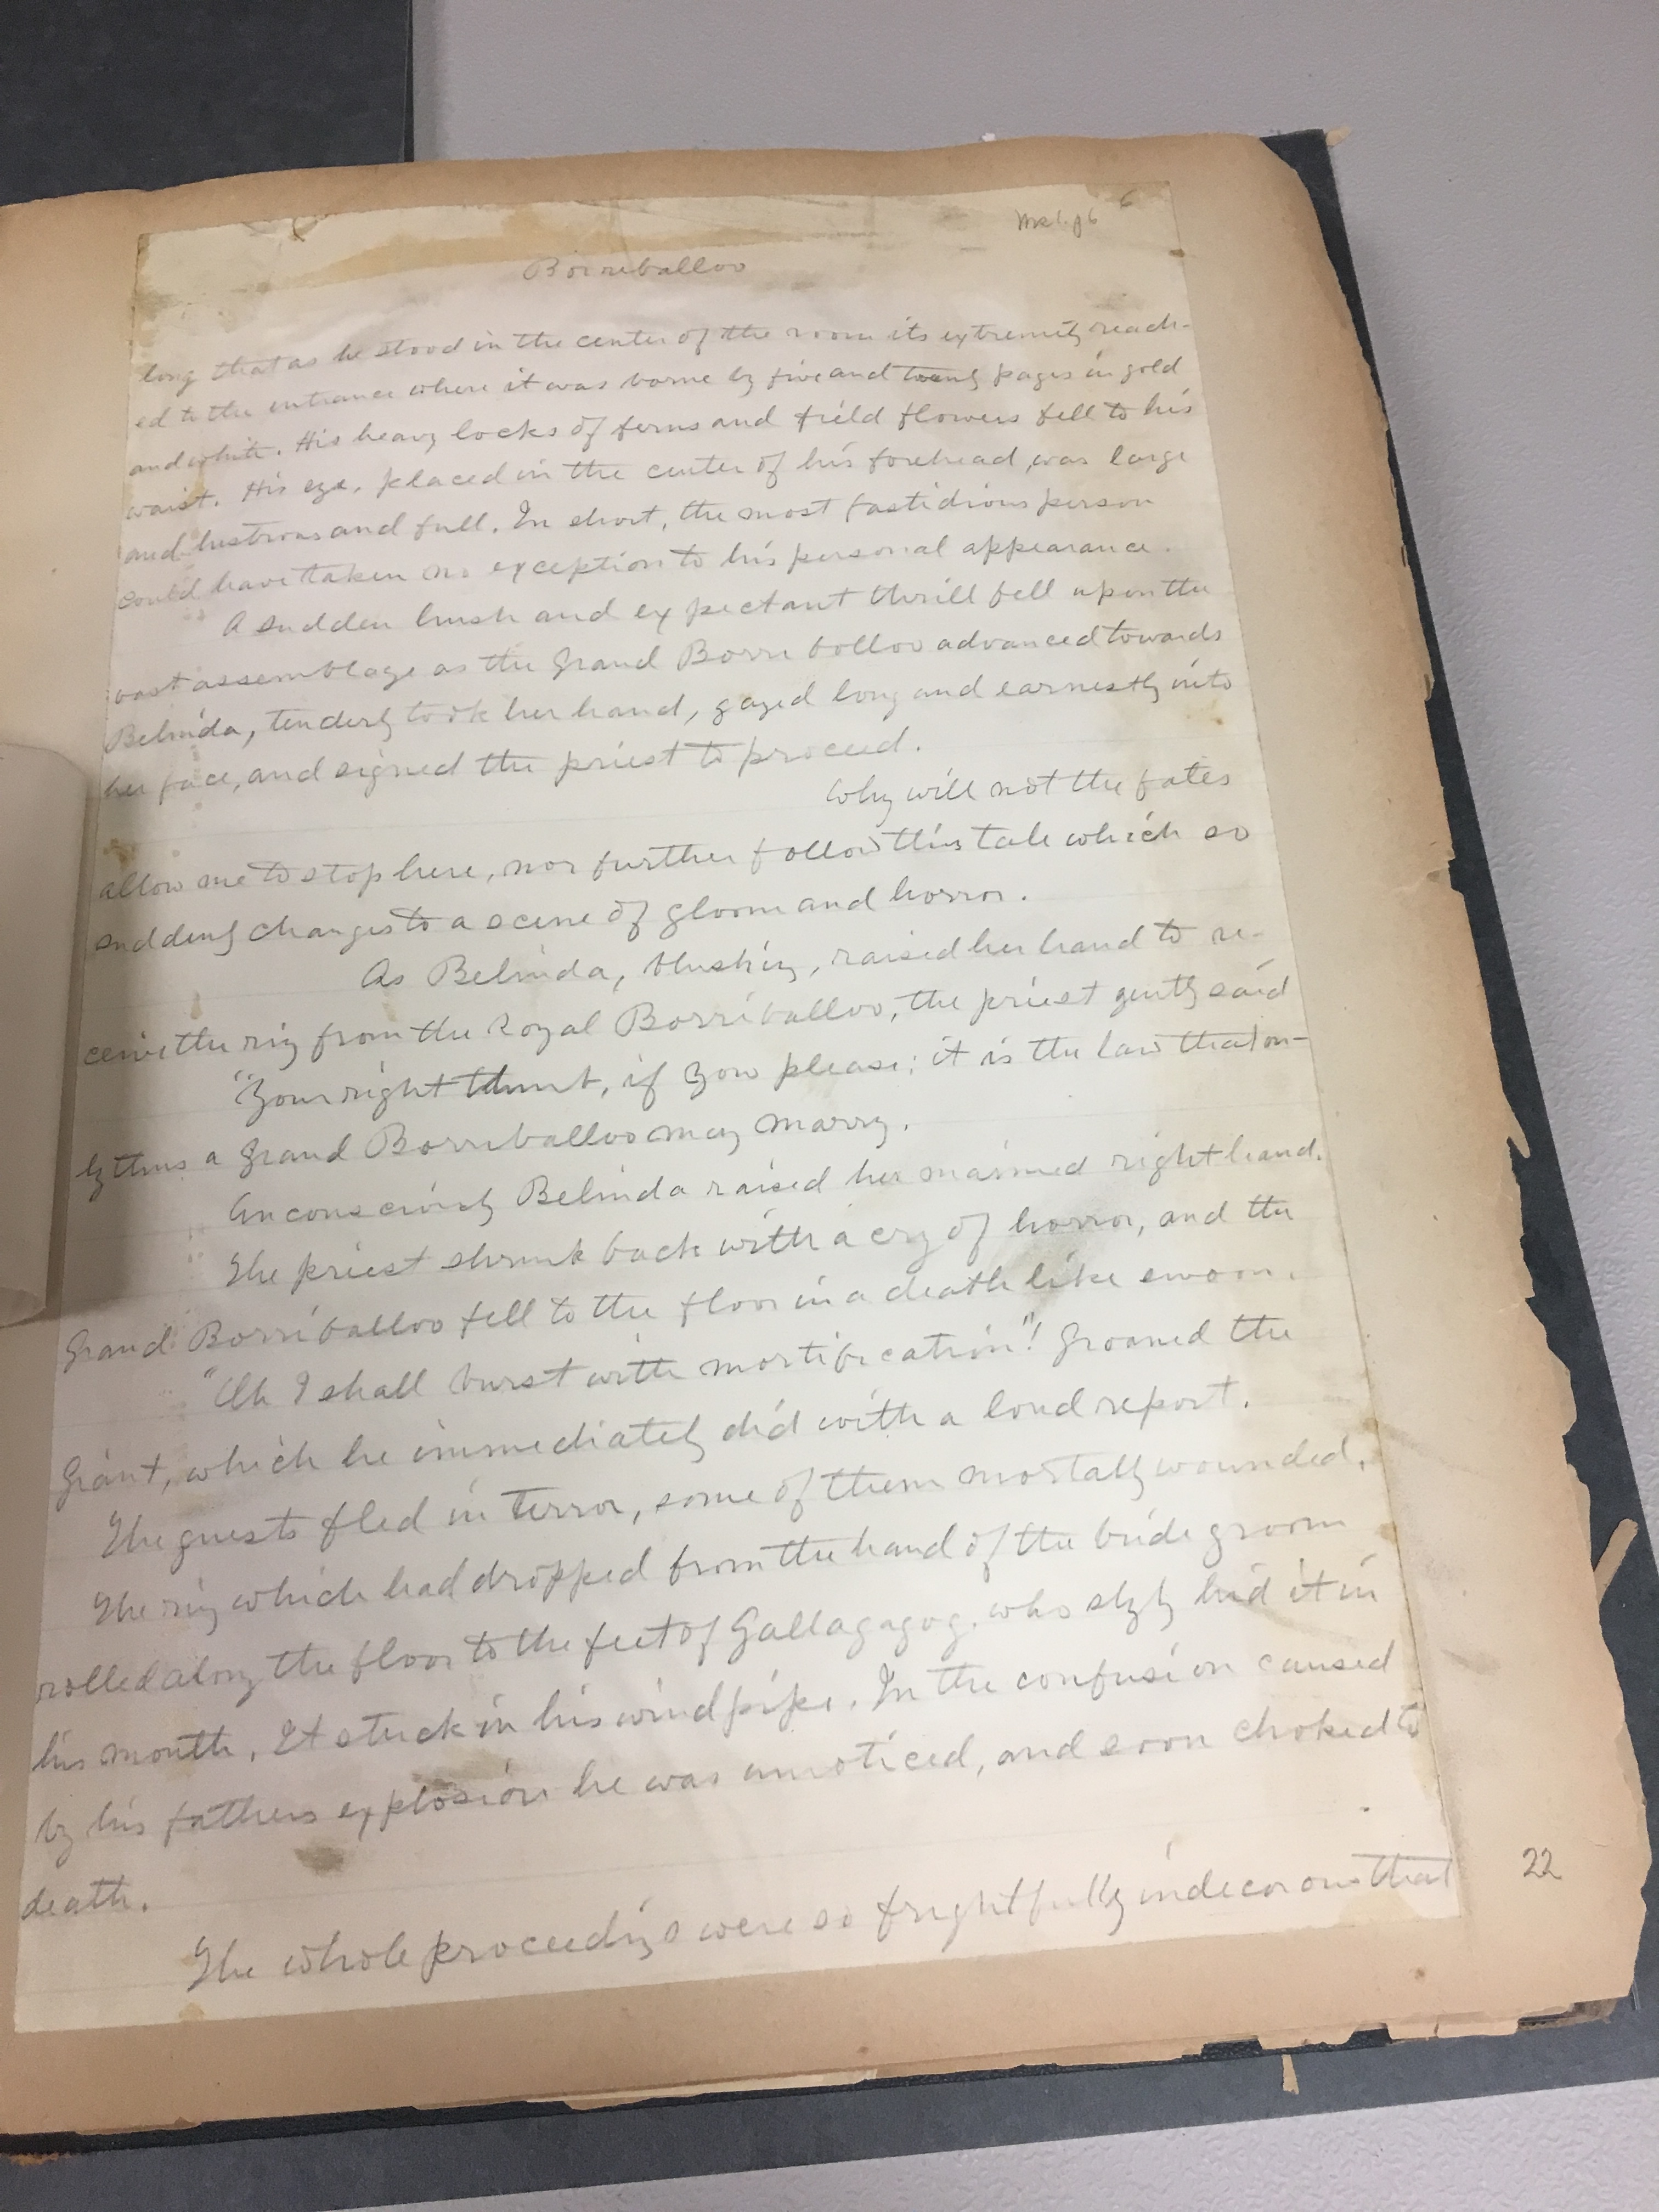 6
Borriballoo
long that as he stood in the center of the room its extremity reach-
ed to the entrance where it was borne by five and twenty pages in gold
and white. His heavy locks of ferns and field flowers fell to his
waist. His eye, placed in the center of his forehead, was large
and lustrous and full. In short, the most fastidious person
could have taken no exception to his personal appearance.
A sudden hush and expectant thrill fell upon the
vast assemblage as the Grand Borriballoo advanced towards
Belinda, tenderly took her hand, gazed long and earnestly into
her face, and signed the priest to proceed.
Why will not the fates
allow me to stop here, nor further follow this tale which so
suddenly changes to a scene of gloom and horror.
As Belinda, blushing, raised her hand to re-
ceive the ring from the Royal Borriballoo, the priest gently said
"Your right thumb, if you please; it is the law that on-
ly thus a Grand Borriballoo may marry.
Unconsciously Belinda raised her maimed right hand.
The priest shrunk back with a cry of horror, and the
Grand Borriballoo fell to the floor in a death like swoon.
"Uh I shall burst with mortification"! groaned the
Giant, which he immediately did with a loud report.
The guests fled in terror, some of them mortally wounded.
The ring which had dropped from the hand of the bride groom
rolled along the floor to the feet of Gallagagog, who slyly hid it in
his mouth. It stuck in his windpipe. In the confusion caused
by his fathers explosion he was unnoticed, and soon choked to
death.
The whole proceedings were so frightfully indecorous that
22